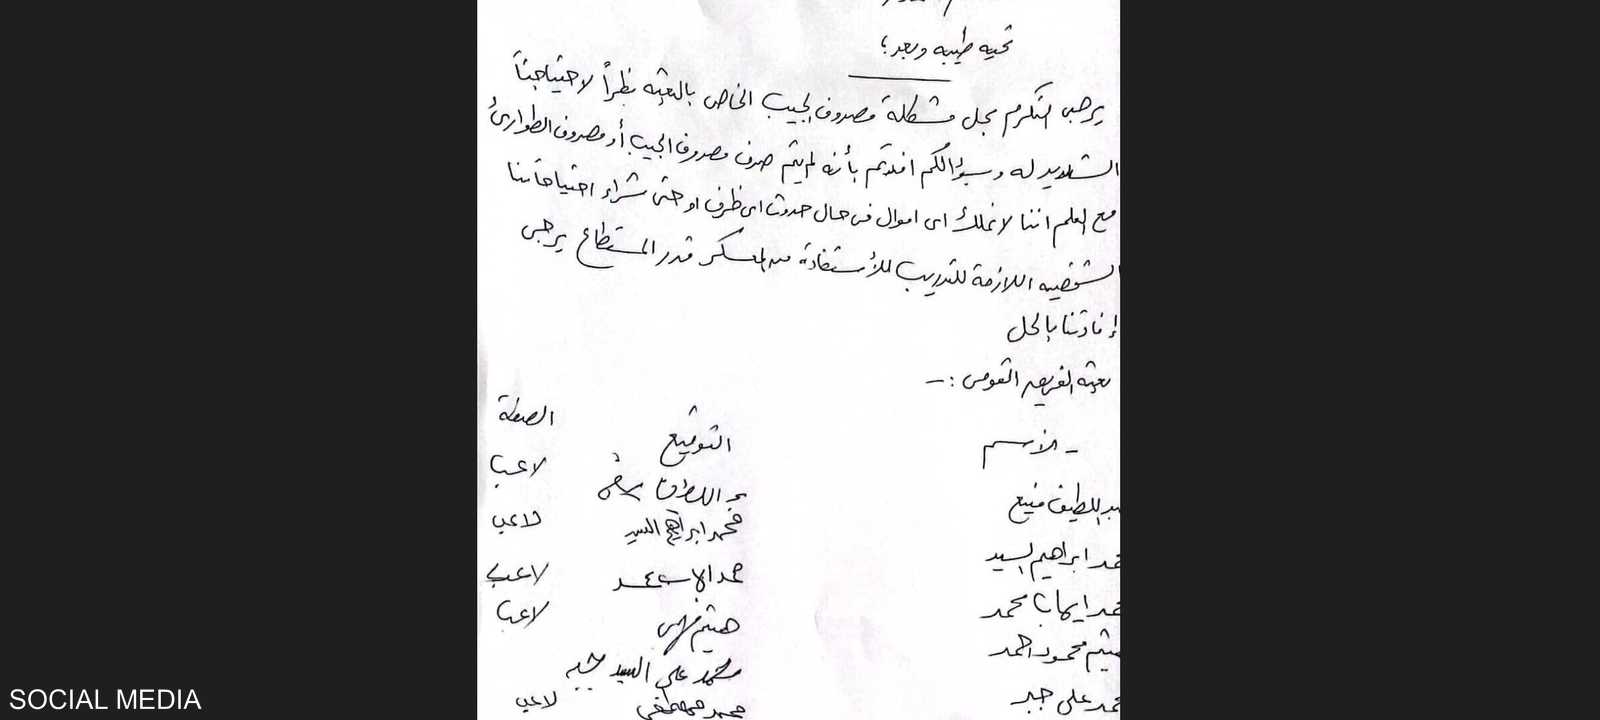 تحيه طيبه وبعد ؛
يرجى التكرم بحل مشكلة مصروف الجيب الخاص بالبعثه نظراً لاحتياجنا
الشديد له وبسؤالكم افدتم بأنه لم يتم صرف مصروف الجيب أو مصروف الطوارئ
مع العلم اننا لا نملك اى اموال فى حال حدوث اى ظرف او حتى شراء احتياجاتنا
الشخصيه اللازمة للتدريب للأستفادة من المعسكر قدر المستطاع يرجى
إفادتنا بالحل
بعثه الفريق القومى :-
- الأسم التوقيع الصفة
عبد اللطيف منيع لاعب
محمد ابراهيم السيد محمد ابراهيم السيد لاعب
محمد ايهاب محمد لاعب
هيثم محمود احمد هيثم فهمى لاعب
محمد على جبر محمد على السيد
محمد مصطفى لاعب
SOCIAL MEDIA